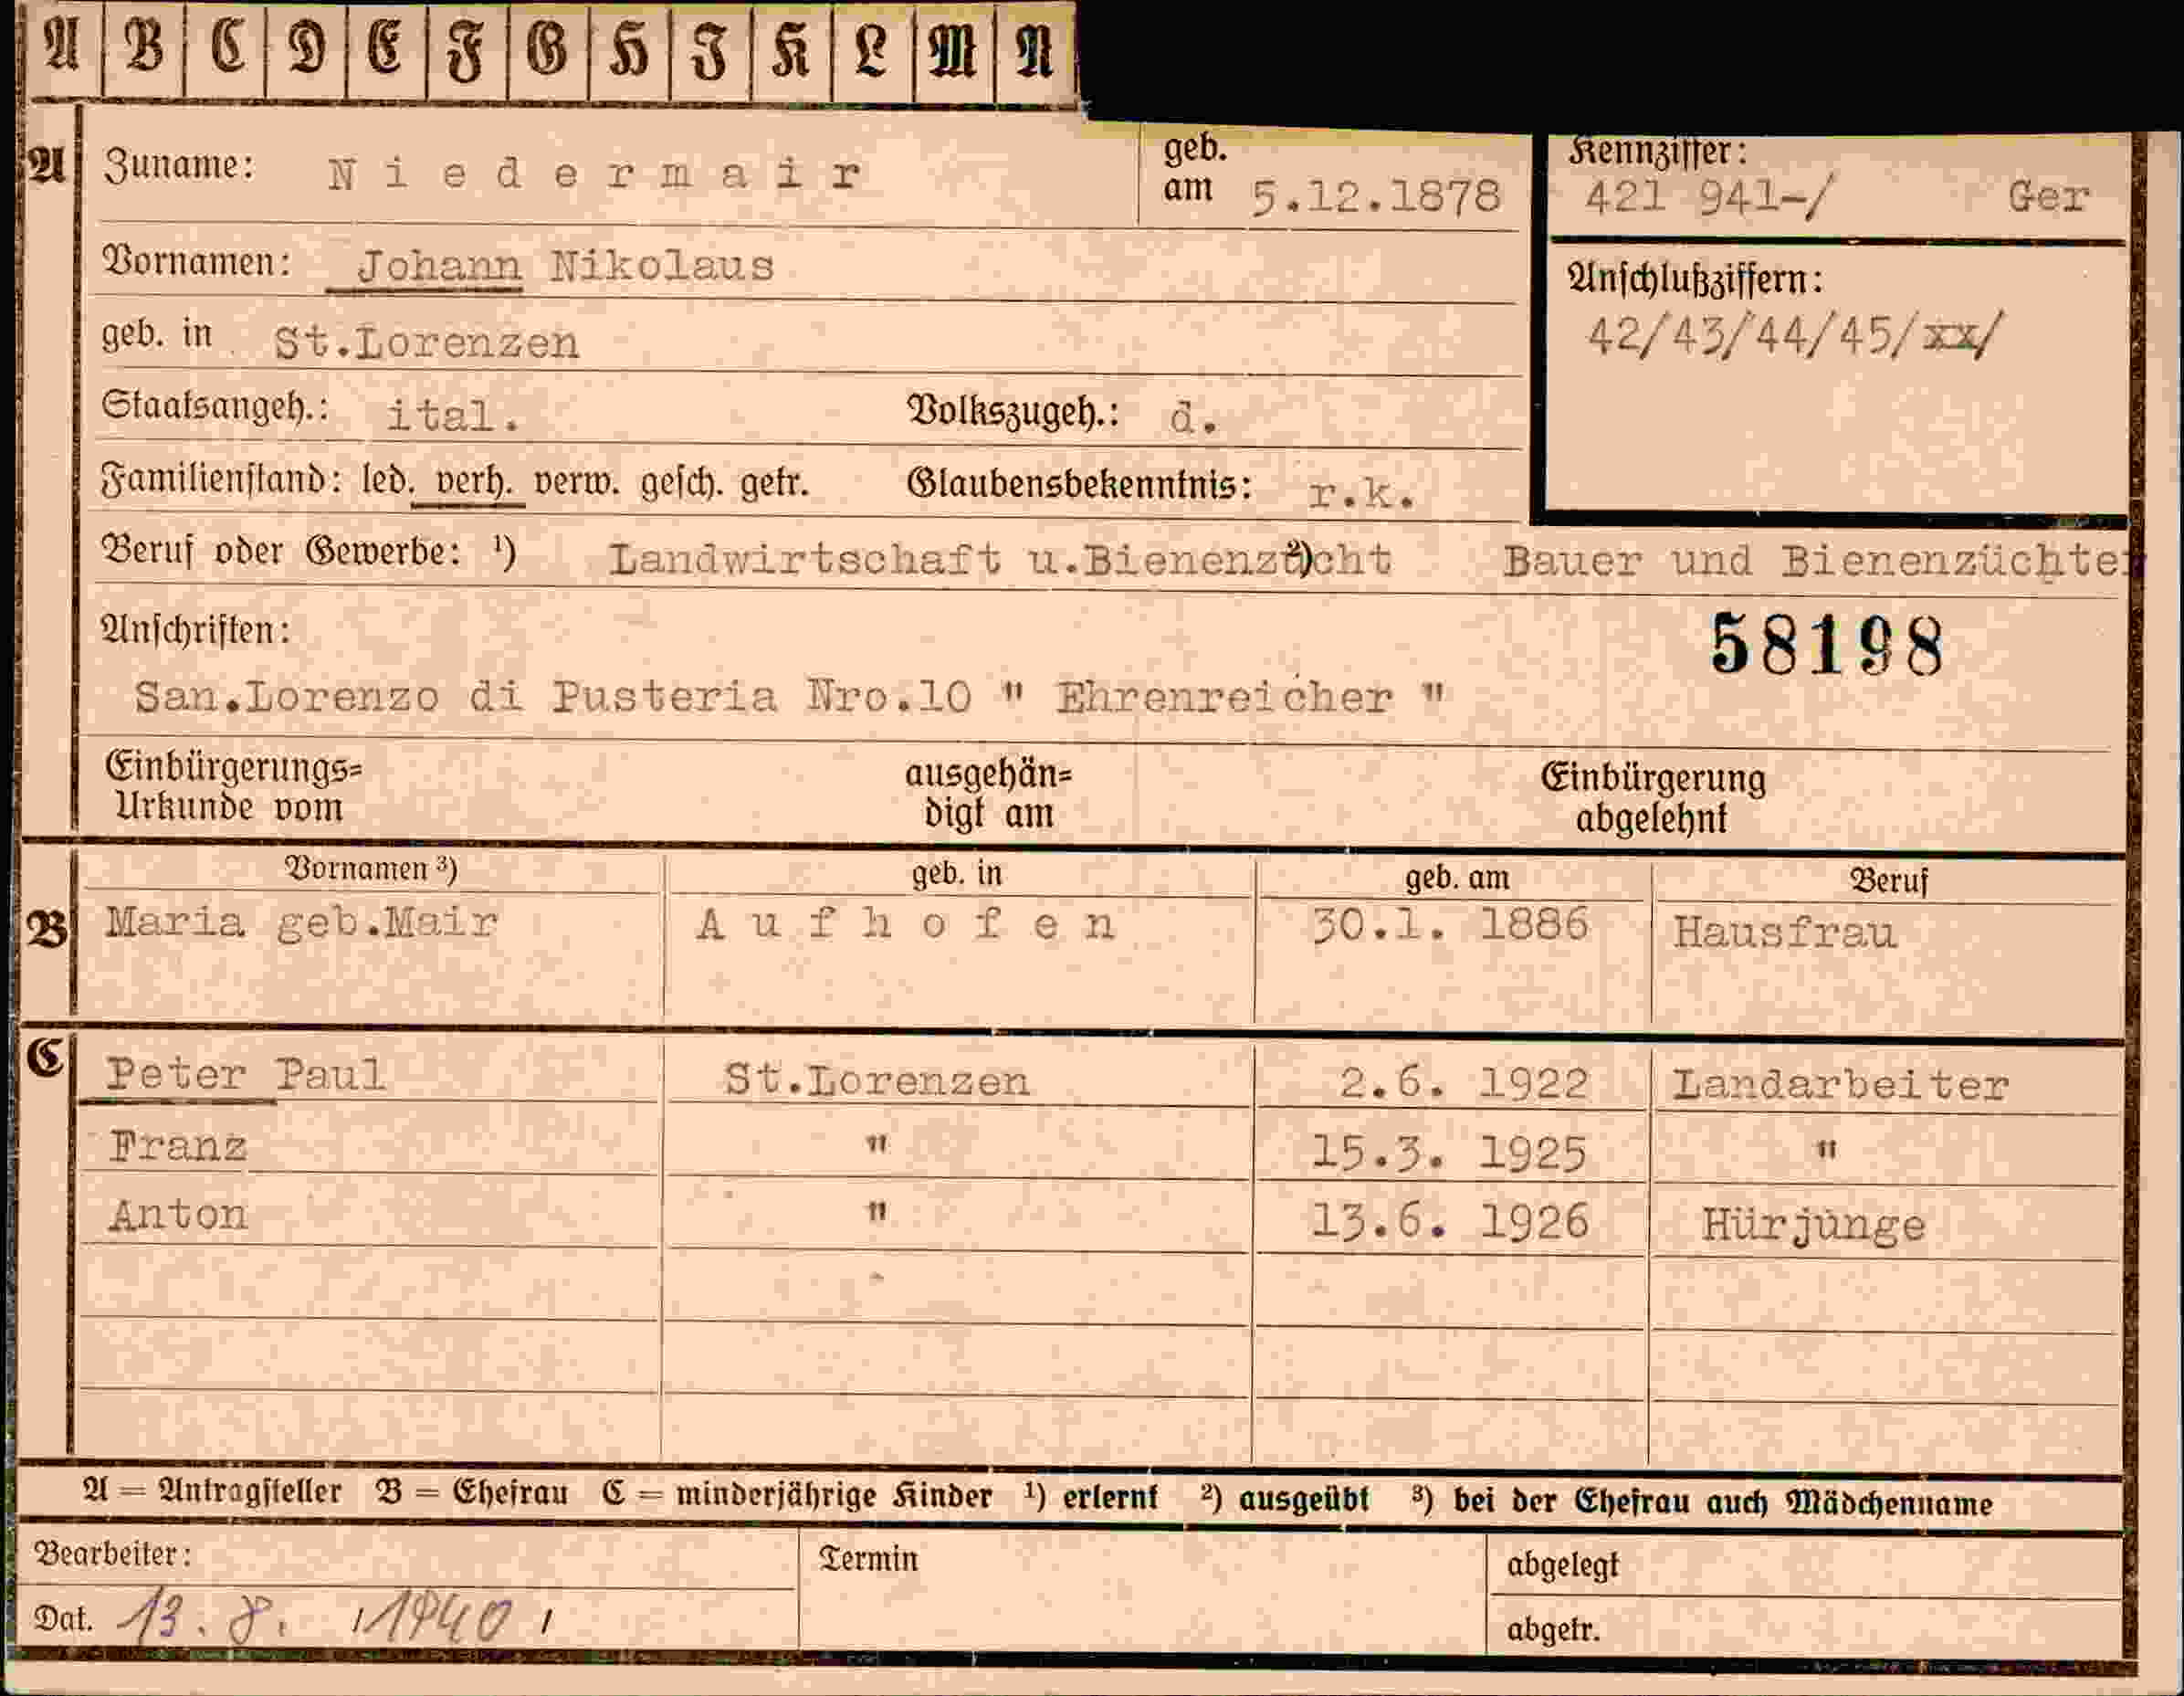 A B C D E F G H I K L M N
A Zuname: Niedermair geb. am 5.12.1878 Kennziffer: 421 941-/ Ger
Vornamen: Johann Nikolaus Anschlußziffern:
geb. in St.Lorenzen 42/43/44/45/xx/
Staatsangeh.: ital. Volkszugeh.: d.
Familienstand: led. verh. verw. gesch. getr. Glaubensbekenntnis: r.k.
Beruf oder Gewerbe: ¹) Landwirtschaft u.Bienenzucht ²) Bauer und Bienenzüchter
Anschriften: 58198
San.Lorenzo di Pusteria Nro.10 " Ehrenreicher "
Einbürgerungs= ausgehän= Einbürgerung
Urkunde vom digt am abgelehnt
Vornamen ³) geb. in geb. am Beruf
B Maria geb.Mair Aufhofen 30.1. 1886 Hausfrau
C Peter Paul St.Lorenzen 2.6. 1922 Landarbeiter
Franz " 15.3. 1925 "
Anton " 13.6. 1926 Hürjunge
A = Antragsteller B = Ehefrau C = minderjährige Kinder ¹) erlernt ²) ausgeübt ³) bei der Ehefrau auch Mädchenname
Bearbeiter: Termin abgelegt
Dat. 13. 8. 1940 abgetr.